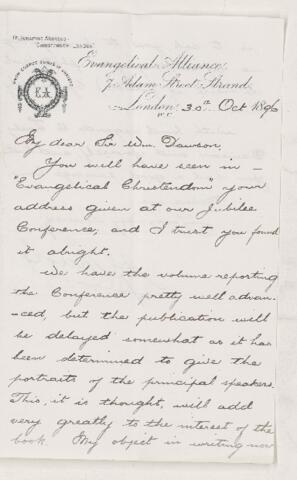 Telegraphic Address:
"Christendom London"
EA
Evangelical Alliance,
7 Adam Street, Strand,
London, 30th Oct 1896
W.C.
My dear Sir Wm. Dawson,
You will have seen in –
"Evangelical Christendom" your
address given at our Jubilee
Conference, and I trust you found
it alright.
We have the volume reporting
the Conference pretty well advan-
-ced, but the publication will
be delayed somewhat as it has
been determined to give the
portraits of the principal speakers.
This, it is thought, will add
very greatly to the interest of the
book. My object in writing now